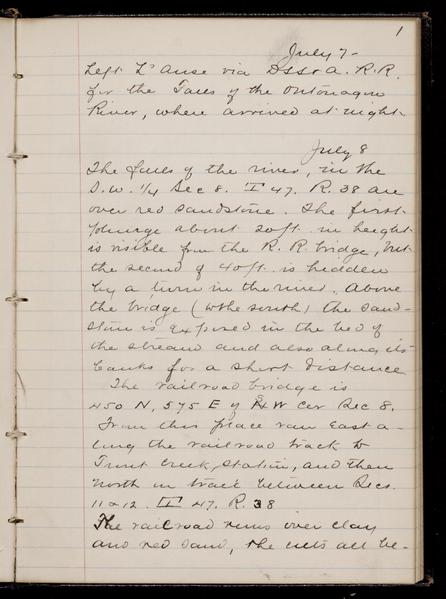 1
July 7-
Left L'Anse via DSS&A. R.R.
for the Falls of the Ontonagon
River, where arrived at night-
July 8
The falls of the river, in the
S.W. 1/4 Sec 8. T 47. R. 38 are
over red sandstone. The first
plunge about 20ft in height
is visible from the R.R bridge, but
the second of 40ft. is hidden
by a turn in the river. Above
the bridge (to the south) the sand-
stone is exposed in the bed of
the stream and also along its
banks for a short distance
The railroad bridge is
450 N, 575 E of SW cor Sec 8.
From this place ran East a-
long the railroad track to
Trout Creek, station, and then
north on track between Secs.
11 & 12. T 47. R. 38
The railroad runs over clay
and red sand, the cuts all be-